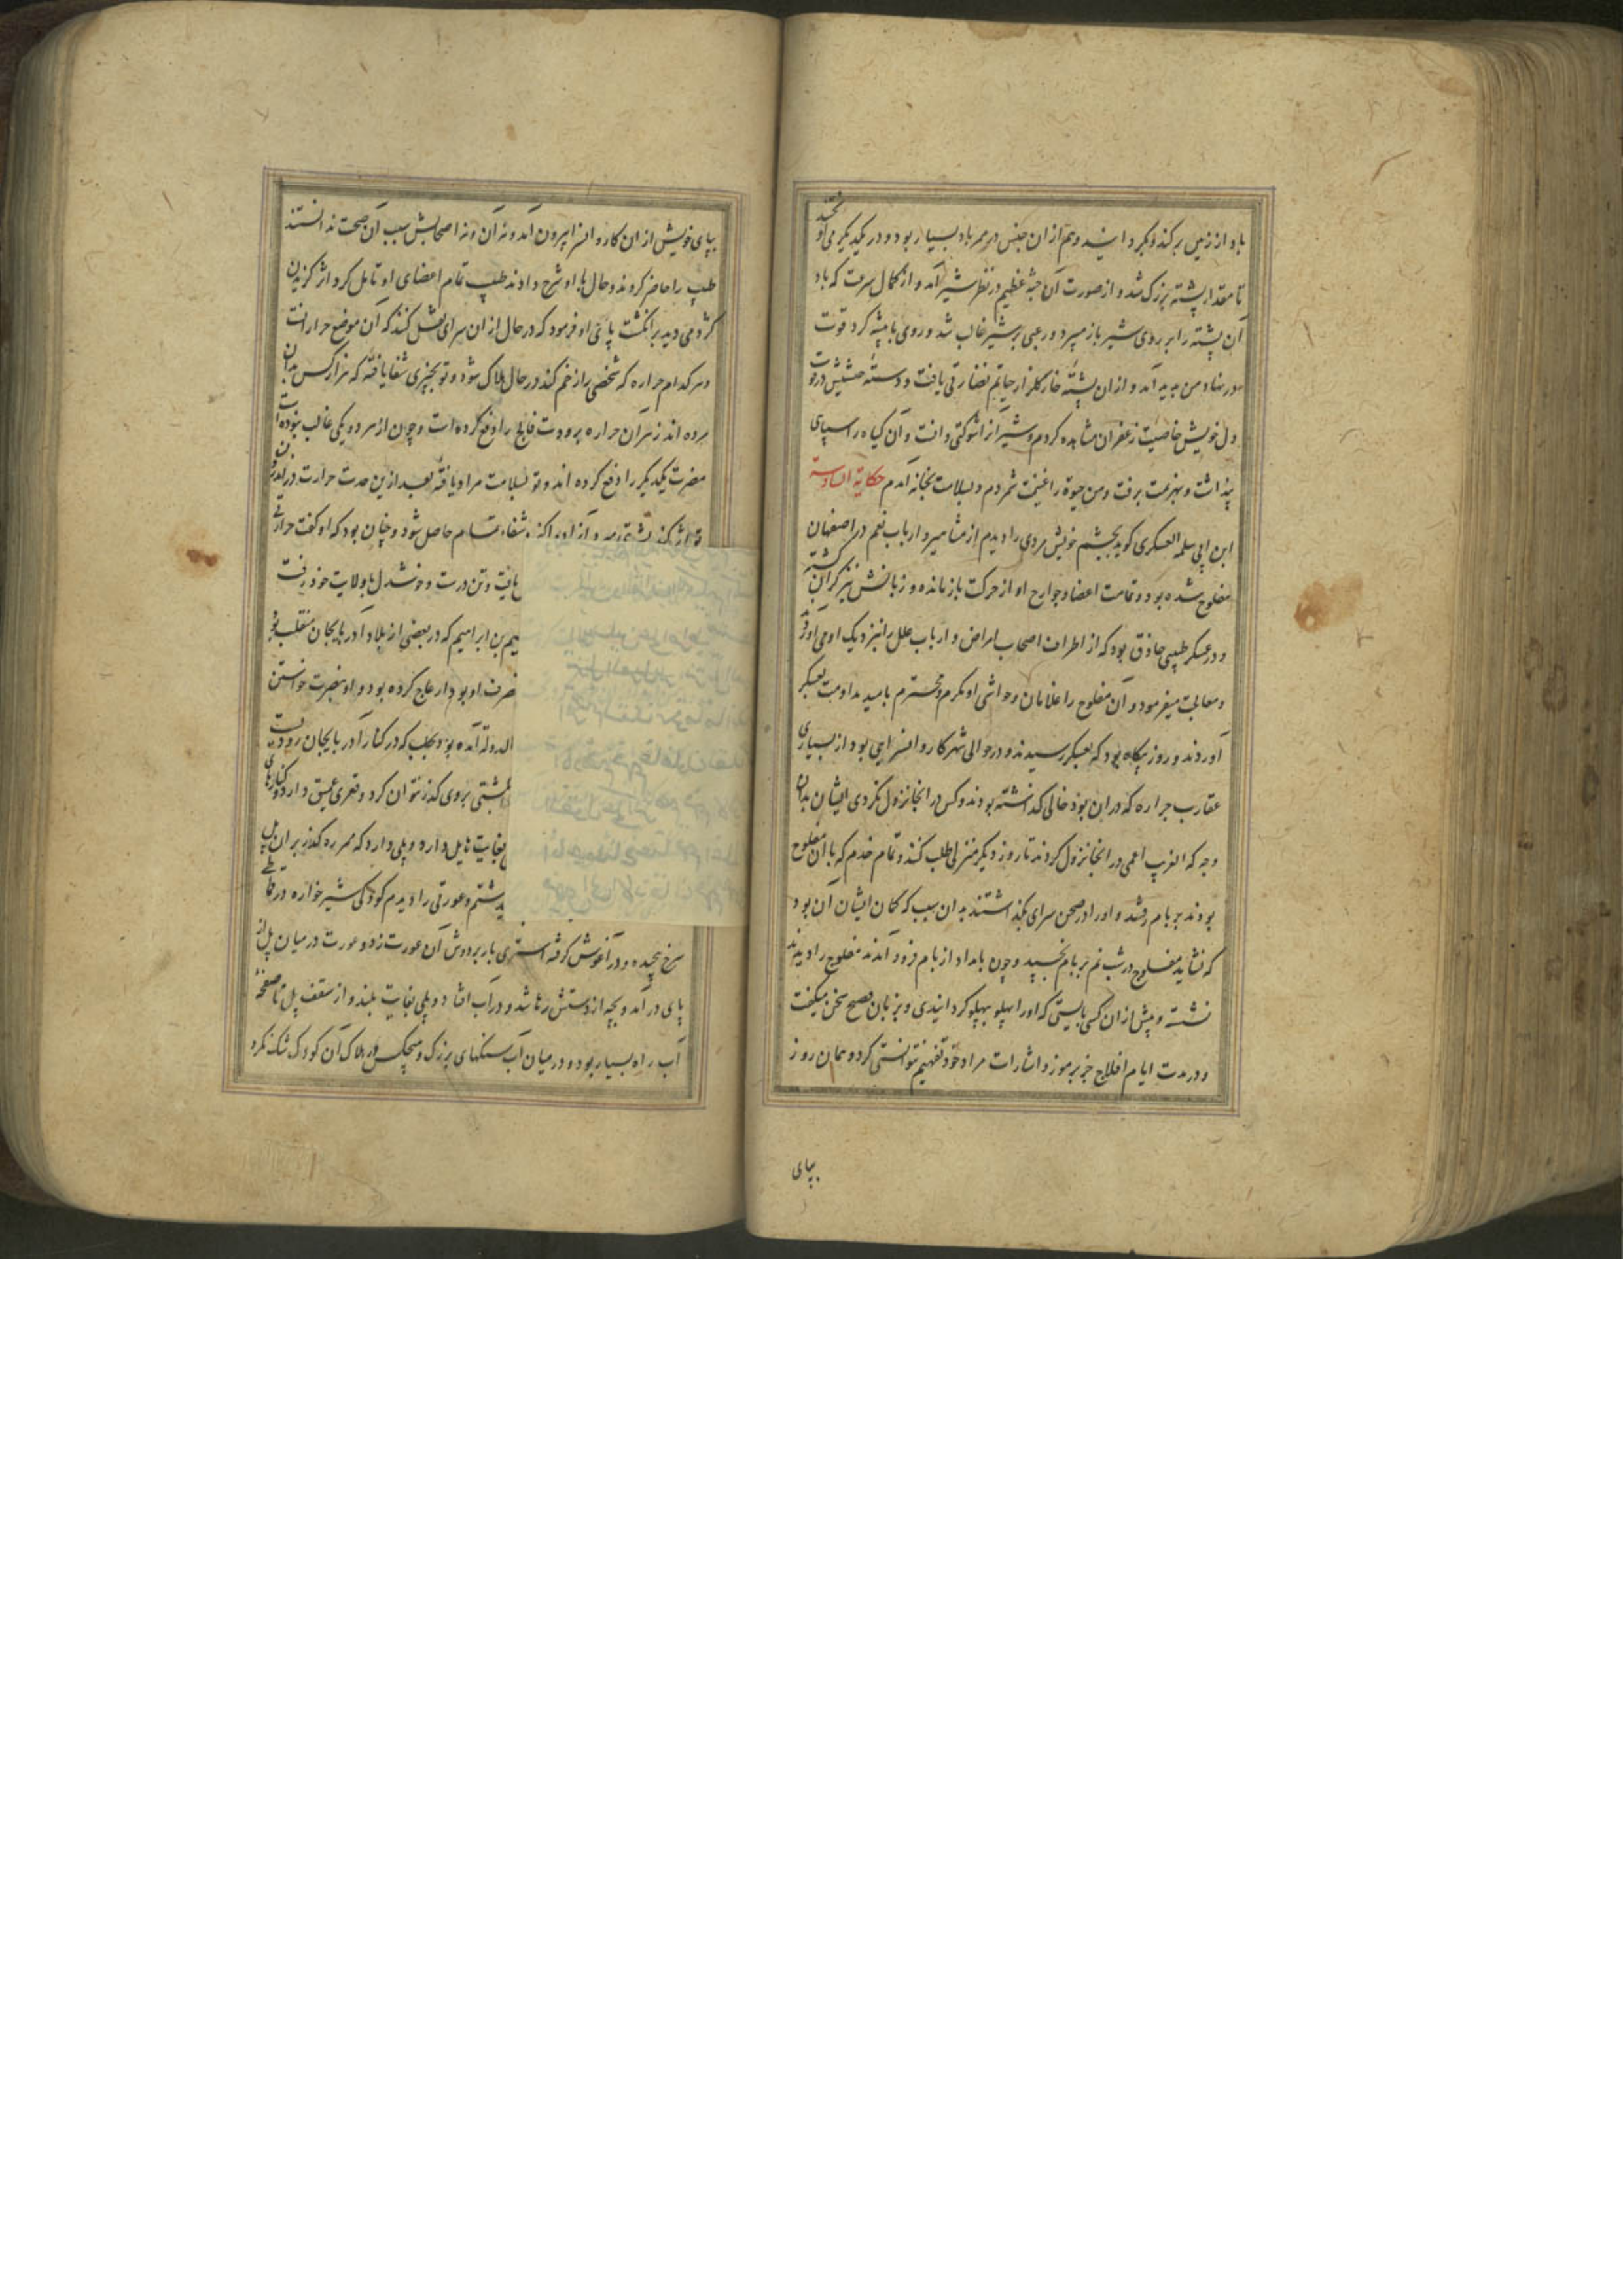 باد از زمین برکند و بگردانید و هم از ان جنس در ممر باد بسیار بود و در یکدیگر می
تا مقدار پشته بزرک شد و از صورت آن جثه عظیم در نظر شیر آمد و از کمال سرعت که باد
آن پشته را بر روی شیر باز میبرد و رعبی بر شیر غالب شد و روی بابیشه کرد قوت
در نهاد من پدید آمد و از ان پشتهٔ خار کلزار حیاتم نضارتی یافت و دسته حشیش در
دل خویش خاصیت زعفران مشاهده کردم و شیر آنرا شوکتی دانست و آن کیاه را سپاهی
پنداشت و بهزیمت برفت و من حیوة را غنیمت شمردم و بسلامت بخانه آمدم حکایة السادسة
ابن ابی سلمة العسکری کوید بچشم خویش مردی را دیدم از مشاهیر و ارباب نعم در اصفهان
مفلوج شده بود و تمامت اعضا و جوارح او از حرکت باز مانده و زبانش نیز کران کشته
و در عسکر طبیبی حاذق بود که از اطراف اصحاب امراض و ارباب علل را بنزدیک او می آوردند
و معالجت میفرمود و آن مفلوج را غلامان و حواشی او مکرم و محترم بامید مداومت بعسکر
آوردند و روز بیکاه بود که بعسکر رسیدند و در حوالی شهر کاروانسرایی بود از بسیاری
عقارب جراره که دران بود خالی کذاشته بودند و کس در انجا نزول نکردی ایشان بدان
وجه که الغریب اعمی در انجا نزول کردند تا روز دیکر منزلی طلب کنند و تمام خدم که با ان مفلوج
بودند بر بام رفتند و او را در صحن سرای بکذاشتند بدان سبب که کمان ایشان آن بود
که نشاید مفلوج در شب نم بر بام نخسپد و چون بامداد از بام فرود آمدند مفلوج را دیدند
نشسته و پیش از ان کسی بایستی که او را پهلو بپهلو کردانیدی و بزبان فصیح سخن میکفت
و در مدت ایام افلاج جز برموز و اشارات مراد خود تفهیم نتوانستی کرد و همان روز
بپای
بپای خویش از ان کاروانسرا بیرون آمد و نه آن و نه اصحابش سبب آن صحت ندانستند
طبیب را حاضر کردند و حال با او شرح دادند طبیب تمام اعضای او تامل کرد اثر کزیدن
کژدمی دید بر انکشت پای او فرمود که در حال از ان سرای نقل کنند که آن موضع جرارانست
و هر کدام جراره که شخصی را زخم کند در حال هلاک شود و تو بچیزی شفا یافتهٔ که هزار کس بدان
مرده اند زهر آن جراره برودت فالج را دفع کرده است و چون از هر دو یکی غالب نبوده است
مضرت یکدیکر را دفع کرده اند و تو بسلامت مراد یافتهٔ بعد ازین حدت حرارت در
شفاء تمام حاصل شود و چنان بود که او کفت حرارتی
عافیت و تن درست و خوشدل با ولایت خود رفت
هیم بن ابراهیم که در بعضی از بلاد آذربایجان متغلب بود
او بود ازعاج کرده بود و او بنصرت خواستن
الدوله آمده بود بحلب که در کنار آذربایجان رودیست
کشتی بروی کذر نتوان کرد و قعری عمیق دارد و کنارهای
بغایت هایل دارد و پلی دارد که ممر ره کذر بران پل
داشتم و عورتی را دیدم کودکی شیر خواره در قماطی
سرخ پیچیده و در آغوش کرفته استری بار بر دوش آن عورت زد و عورت در میان پل از
پای درآمد و بچه از دستش رها شد و در آب افتاد و پلی بغایت بلند و از سقف پل تا صفحهٔ
آب راه بسیار بود و در میان آب سنکهای بزرک و هیچکس در هلاک آن کودک شک نکرد